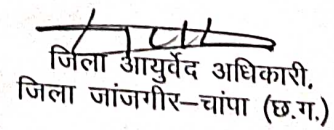 जिला आयुर्वेद अधिकारी,
जिला जांजगीर–चांपा (छ.ग.)